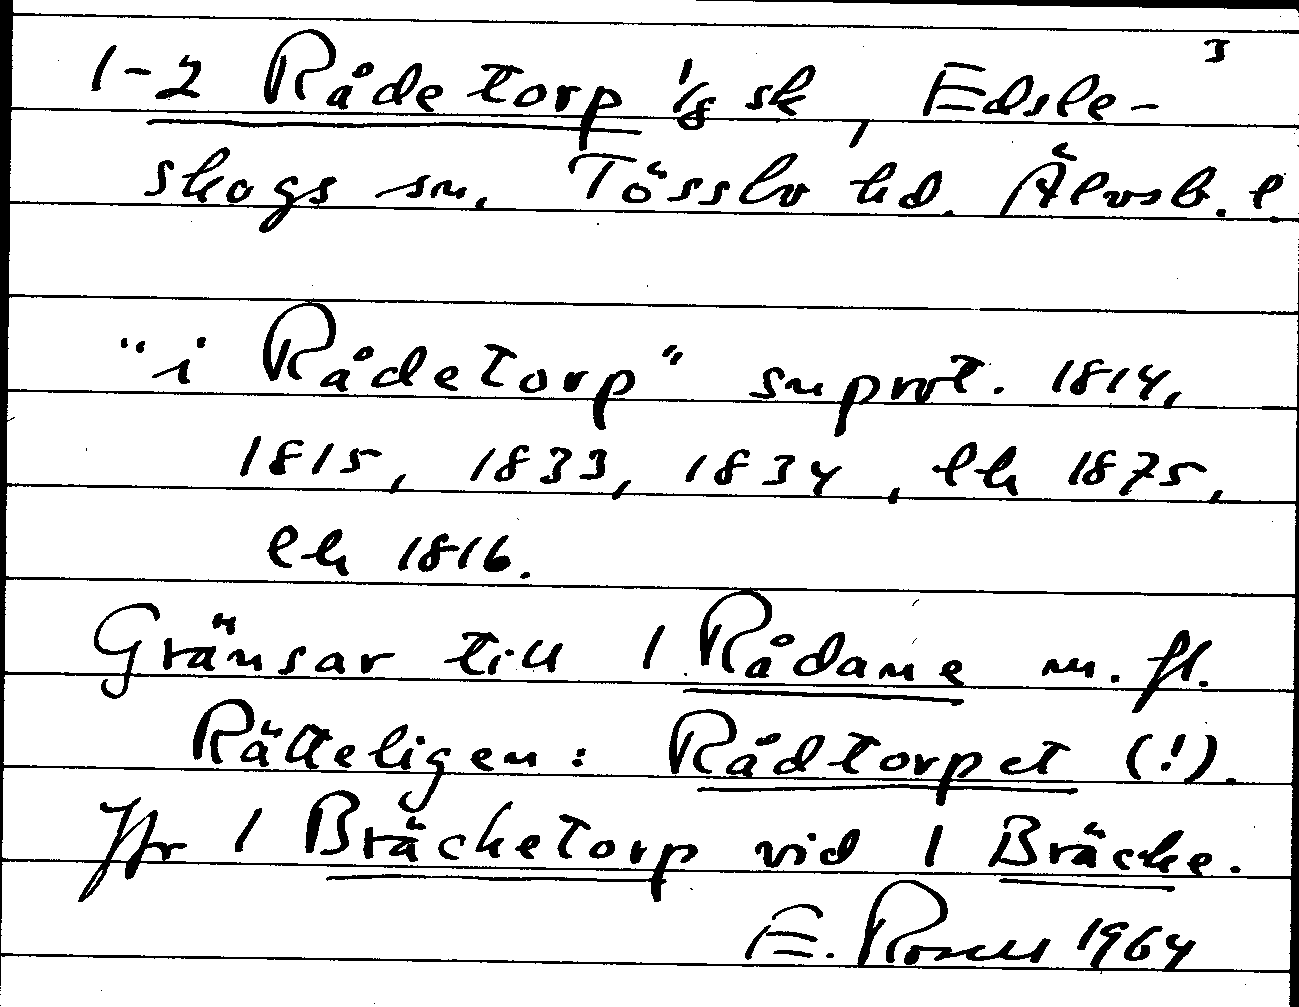 3
1-2 Rådetorp 1/8 sk, Edsle-
skogs sn. Tössbo hd. Älvsb. l.
"i Rådetorp" snprot. 1814,
1815, 1833, 1834, lk 1875,
ek 1816.
Gränsar till 1 Rådane m. fl.
Rätteligen: Rådtorpet (!).
Jfr 1 Bräcketorp vid 1 Bräcke.
E. 1964